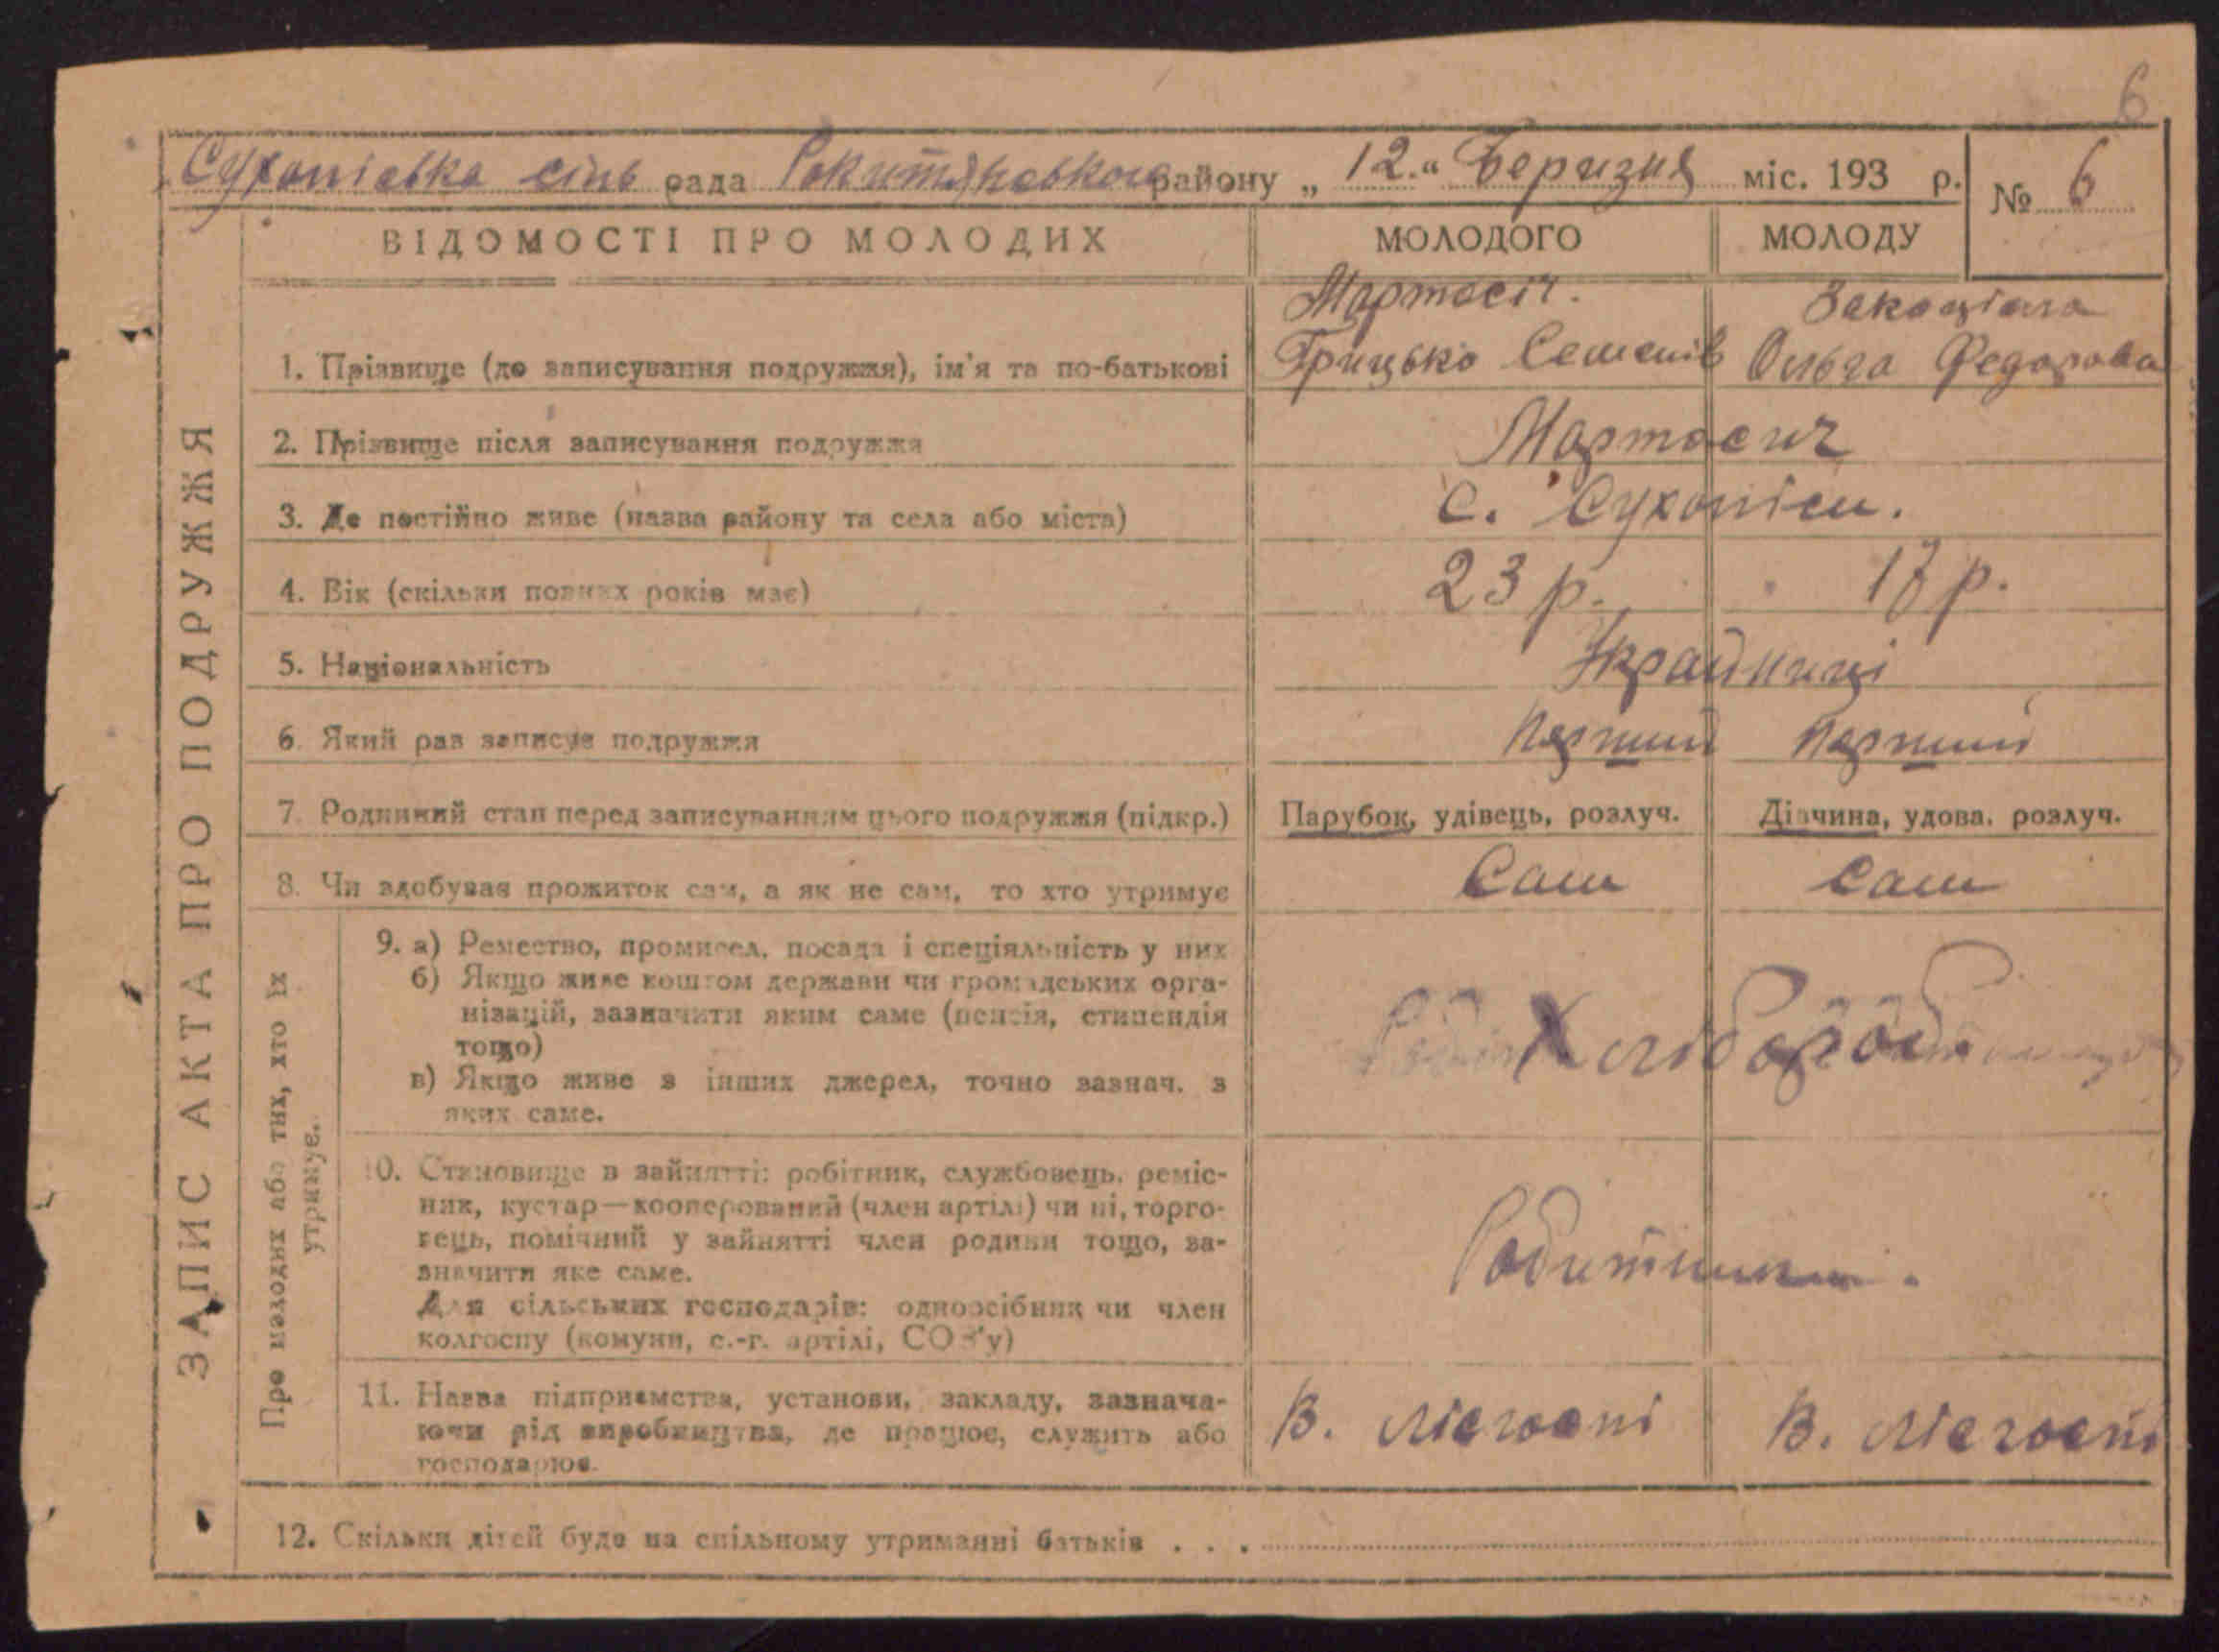 6
Сухоліська сіль рада Рокитянською району „ 12. “ Березня міс. 193 р.
№ 6
ВІДОМОСТІ ПРО МОЛОДИХ
МОЛОДОГО
МОЛОДУ
1. Прізвище (до записування подружжя), ім'я та по-батькові
Мартосіч.
Грицько Семенів
Ольга Федорова
2. Прізвище після записування подружжя
Мартосич
3. Де постійно живе (назва району та села або міста)
С. Сухоліси.
4. Вік (скільки повних років має)
23 р.
17 р.
5. Національність
Українці
6. Який раз записує подружжя
Перший
Перший
7. Родинний стан перед записуванням цього подружжя (підкр.)
Парубок, удівець, розлуч.
Дівчина, удова, розлуч.
8. Чи здобував прожиток сам, а як не сам, то хто утримує
Сам
Сам
ЗАПИС АКТА ПРО ПОДРУЖЖЯ
Про молодих або тих, хто їх
утримує.
9. а) Ремество, промисел, посада і спеціяльність у них
б) Якщо живе коштом держави чи громадських орга-
нізацій, зазначити яким саме (пенсія, стипендія
тощо)
в) Якщо живе з інших джерел, точно зазнач. з
яких саме.
Хлібороб
10. Становище в зайнятті: робітник, службовець, реміс-
ник, кустар—кооперований (член артілі) чи ні, торго-
вець, помічний у зайнятті член родини тощо, за-
значити яке саме.
Для сільських господарів: одноосібник чи член
колгоспу (комуни, с.-г. артілі, СОЗ'у)
11. Назва підприємства, установи, закладу, зазнача-
ючи рід виробництва, де працює, служить або
господарює.
В. лісгоспі
В. лісгоспі
12. Скільки дітей буде на спільному утриманні батьків . . .